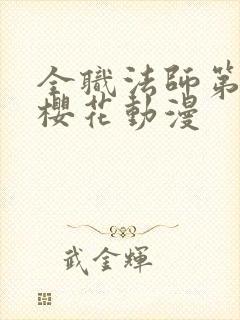 全職法師第
櫻花動漫
武金輝